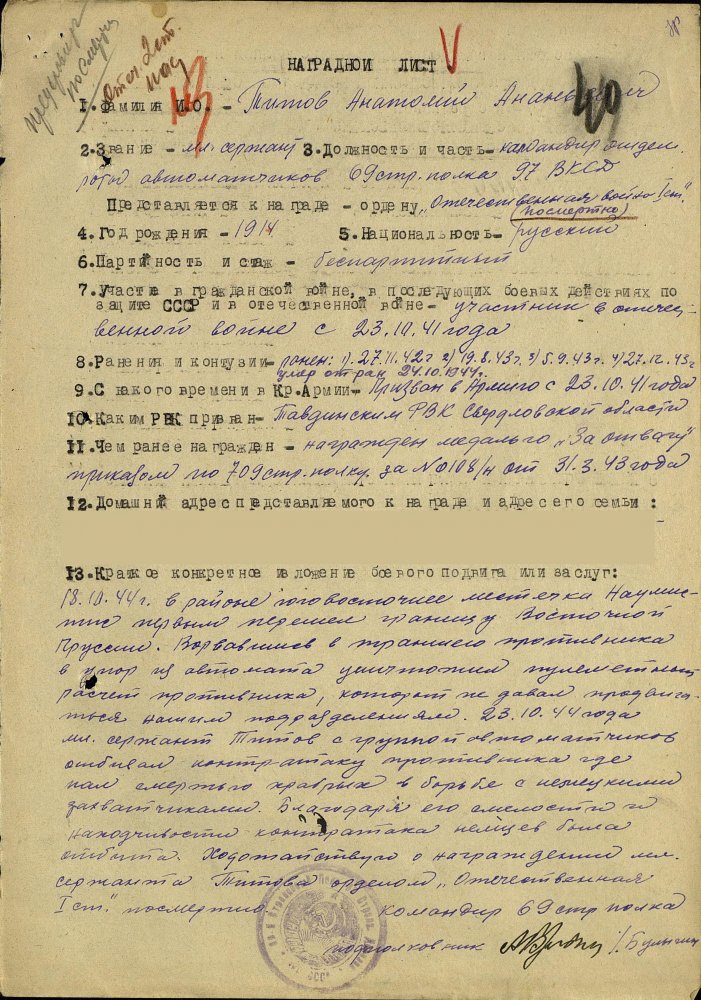 посмертно
НАГРАДНОЙ ЛИСТ V
40
1.Фамилия И.О. – Титов Анатолий Ананьевич
2.Звание – мл. сержант 3.Должность и часть – командир отдел.
роты автоматчиков 69 стр. полка 97 ВКСД
Представляется к награде – ордену „Отечественная война I ст."
(посмертно)
4.Год рождения – 1914 5.Национальность – русский
6.Партийность и стаж – беспартийный
7.Участие в гражданской войне, в последующих боевых действиях по
защите СССР и в отечественной войне – участник в отечес-
венной войне с 23.10.41 года
8.Ранения и контузии – ранен: 1) 27.11.42г 2) 19.8.43г. 3) 5.9.43г. 4) 27.12.43г
умер от ран 24.10.1944г.
9.С какого времени в Кр.Армии – Призван в Армию с 23.10.41 года
10.Каким РВК призван – Тавдинским РВК Свердловской области
11.Чем ранее награжден – награжден медалью „За отвагу"
приказом по 709 стр. полку за №0108/н от 31.3.43 года
12.Домашний адрес представляемого к награде и адрес его семьи :
13.Краткое конкретное изложение боевого подвига или заслуг:
18.10.44г. в районе юговосточнее местечка Наумис-
тис первым перешел границу Восточной
Пруссии. Ворвавшись в траншею противника
в упор из автомата уничтожил пулеметный
расчет противника, который не давал продвига-
ться нашим подразделениям. 23.10.44 года
мл. сержант Титов с группой автоматчиков
отбивал контратаку противника где
пал смертью храбрых в борьбе с немецкими
захватчиками. Благодаря его смелости и
находчивости контратака немцев была
отбита. Ходотайствую о награждении мл.
сержанта Титова орденом „Отечественная
I ст." посмертно. командир 69 стр полка
подполковник /Булыгин